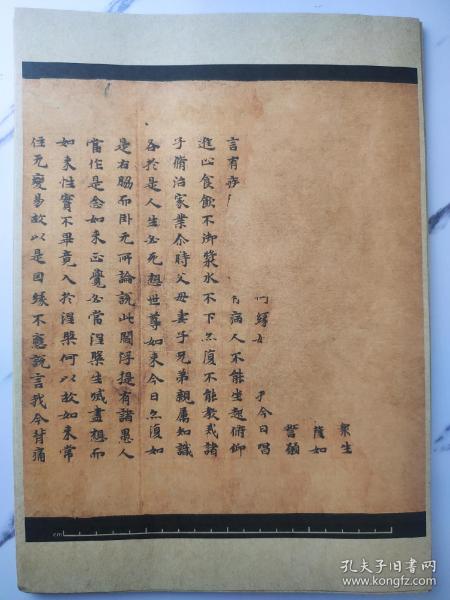 衆生
隨如
誓願
何緣 今日唱
言有疾 病人不能坐起俯仰
進止食飲不御漿水不下亦復不能教戒諸
子脩治家業尒時父母妻子兄弟親屬知識
各於是人生必死想世尊如來今日亦復如
是右脇而臥无所論說此閻浮提有諸愚人
當作是念如來正覺必當涅槃生滅盡想而
如來性實不畢竟入於涅槃何以故如來常
住无變易故以是因緣不應說言我今背痛
cm
孔夫子旧书网
www.kongfz.com